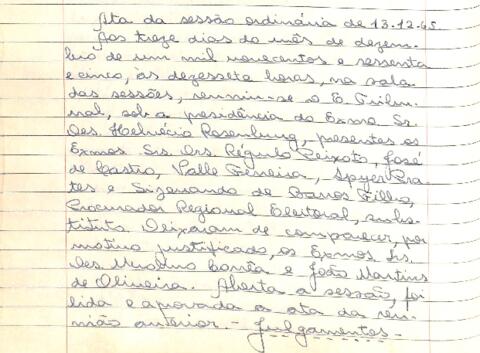 Ata da sessão ordinária de 13.12.65.
Aos treze dias do mês de dezem-
bro de um mil novecentos e sessenta
e cinco, às dezessete horas, na sala
das sessões, reuniu-se o E. Tribu-
nal, sob a presidência do Exmo. Sr.
Des. Helvécio Rosenburg, presentes os
Exmos. Srs. Drs. Régulo Peixoto, José
de Castro, Valle Ferreira, Spyer Pra-
tes e Sizenando de Barros Filho,
Procurador Regional Eleitoral, subs-
tituto. Deixaram de comparecer, por
motivo justificado, os Exmos. Srs.
Des. e João Martins
de Oliveira. Aberta a sessão, foi
lida e aprovada a ata da reu-
nião anterior. - Julgamentos -